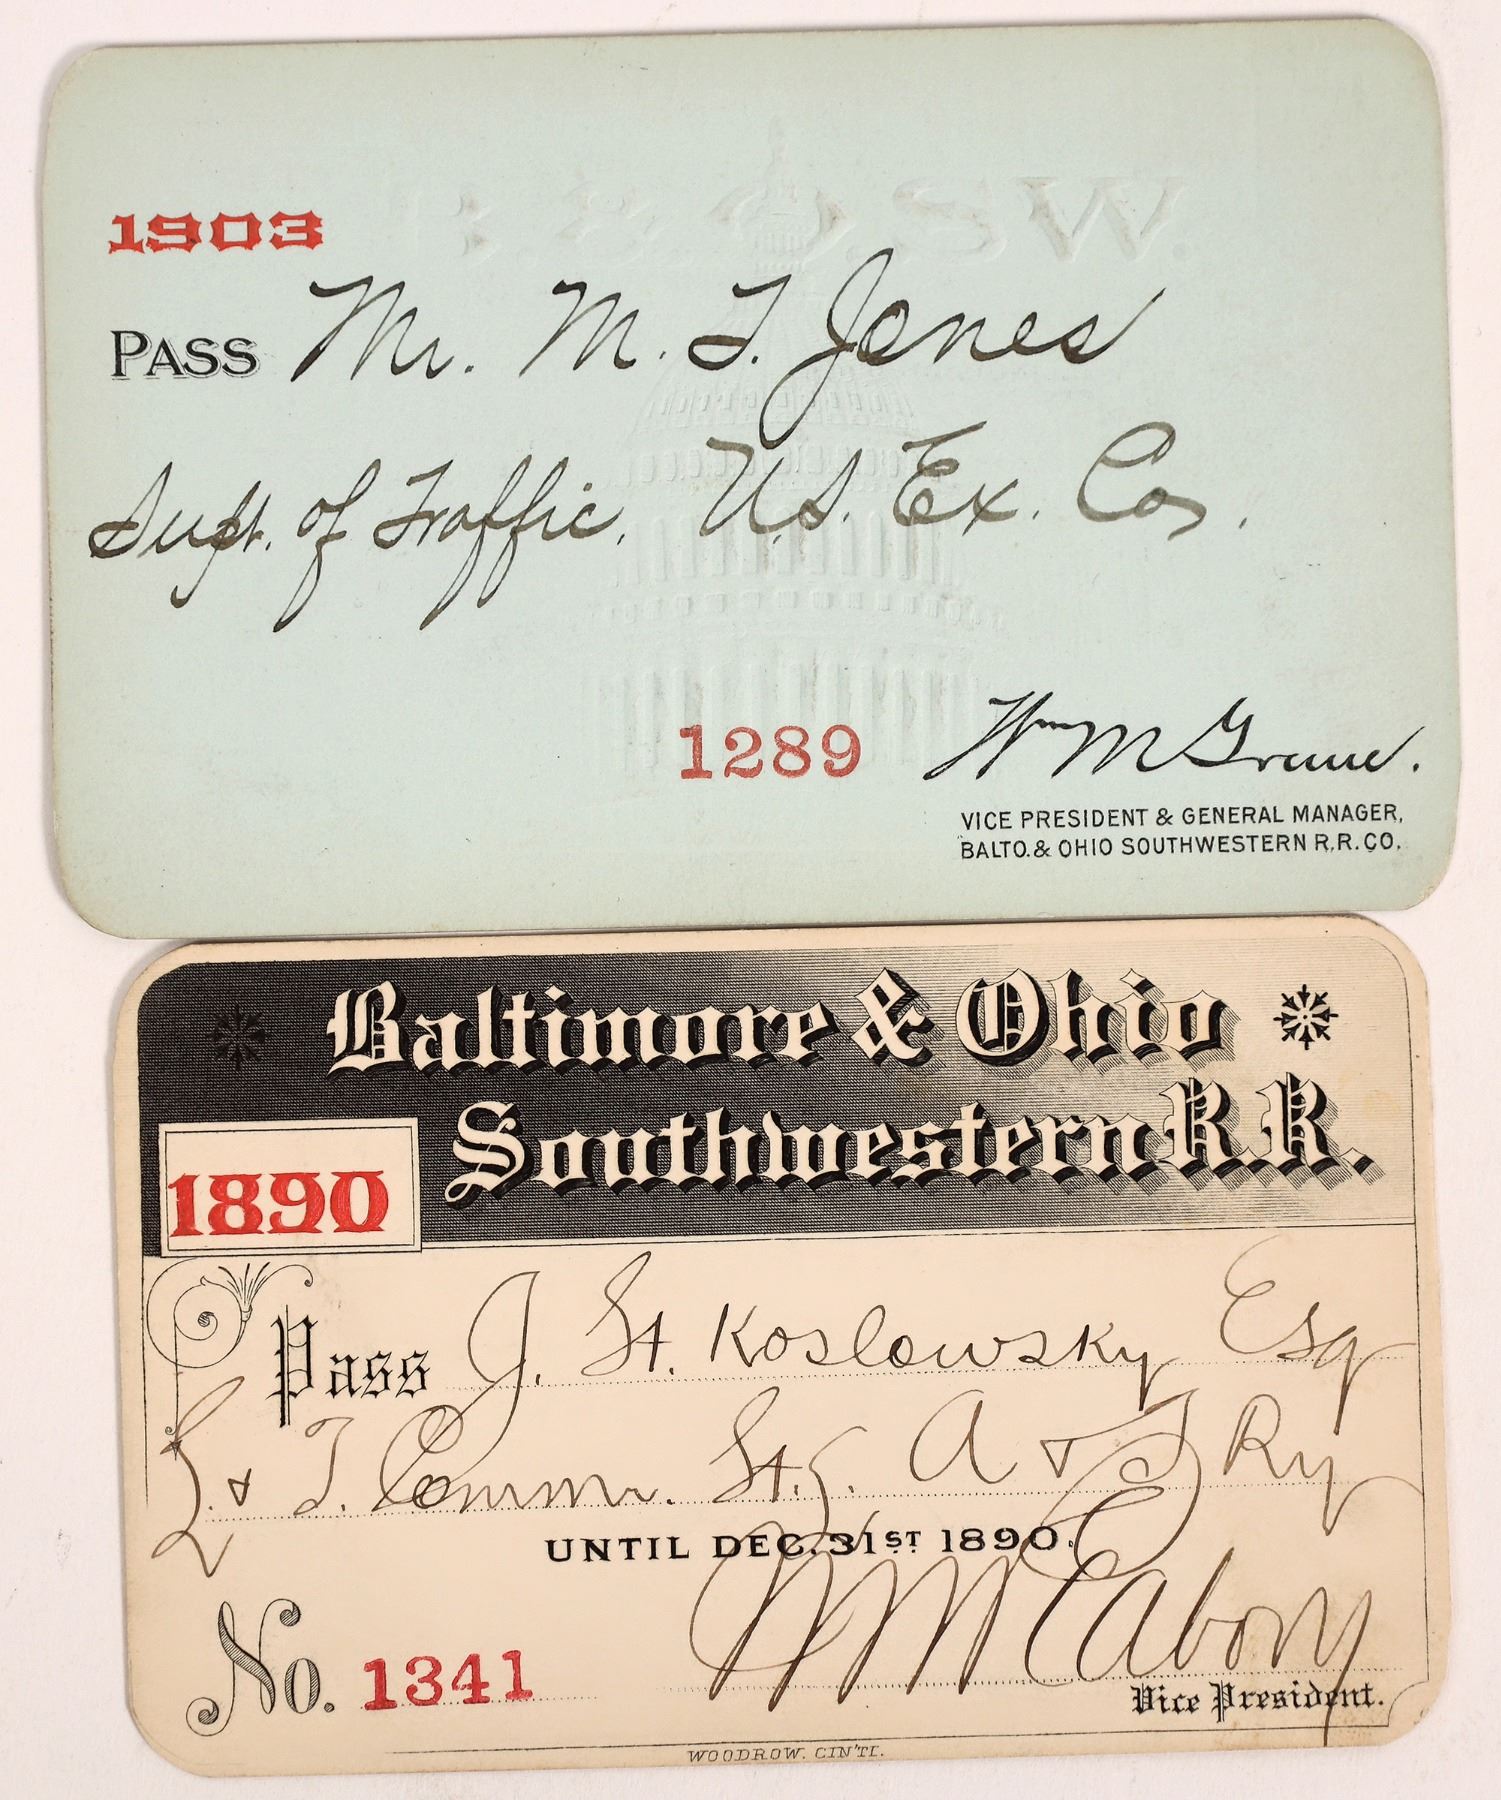 1903
PASS Mr. M. T. Jones
Supt. of Traffic, U.S. Ex. Co.
1289
VICE PRESIDENT & GENERAL MANAGER,
BALTO. & OHIO SOUTHWESTERN R.R. CO.
Baltimore & Ohio
Southwestern R.R.
1890
Pass J. St. Koslowsky Esq
& T. Commr. St. L. A & T Ry
UNTIL DEC. 31ST 1890.
No. 1341
Vice President.
WOODROW. CIN'TI.